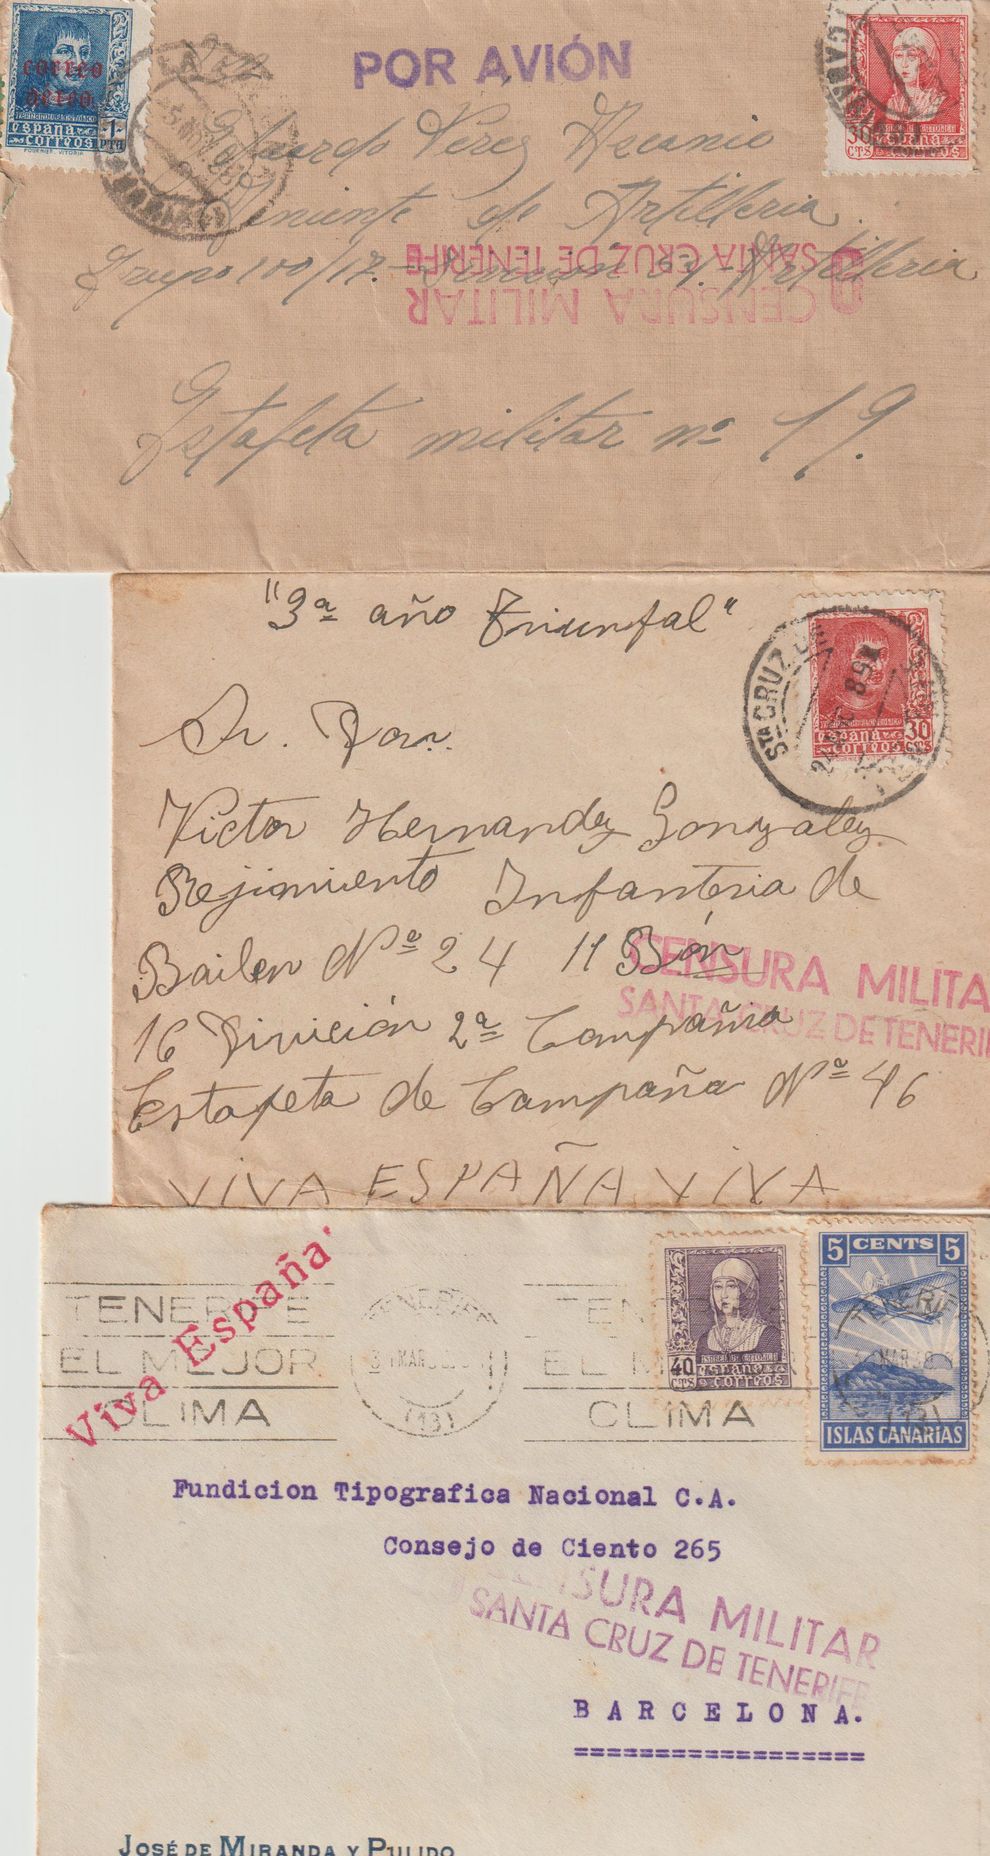 correo
aéreo
españa 1
correos PTA
FOURNIER. VITORIA
POR AVIÓN
30 españa
CTS correos
Perez Ascanio
Teniente de Artilleria
Grupo 100/17.- Division 54. Artilleria
CENSURA MILITAR
SANTA CRUZ DE TENERIFE
Estafeta militar nº 19.
"3ª año Triunfal"
STA CRUZ
españa 30
correos CTS
Sr. Don.
Victor Hernandez Gonzalez
Rejimiento Infanteria de
Bailen Nº 24 11 Bón
16 Divición 2ª Compañia
Estafeta de Campaña Nº 46
CENSURA MILITA
SANTA CRUZ DE TENERIF
VIVA ESPAÑA VIVA
Viva España
TENERIFE
EL MEJOR
CLIMA
TENERIFE
MAR
(13)
EL M
CLIMA
40 españa
CTS correos
5 CENTS 5
TENERIFE
MAR 39
ISLAS CANARIAS
Fundicion Tipografica Nacional C.A.
Consejo de Ciento 265
CENSURA MILITAR
SANTA CRUZ DE TENERIFE
BARCELONA.
==================
JOSÉ DE MIRANDA Y PULIDO